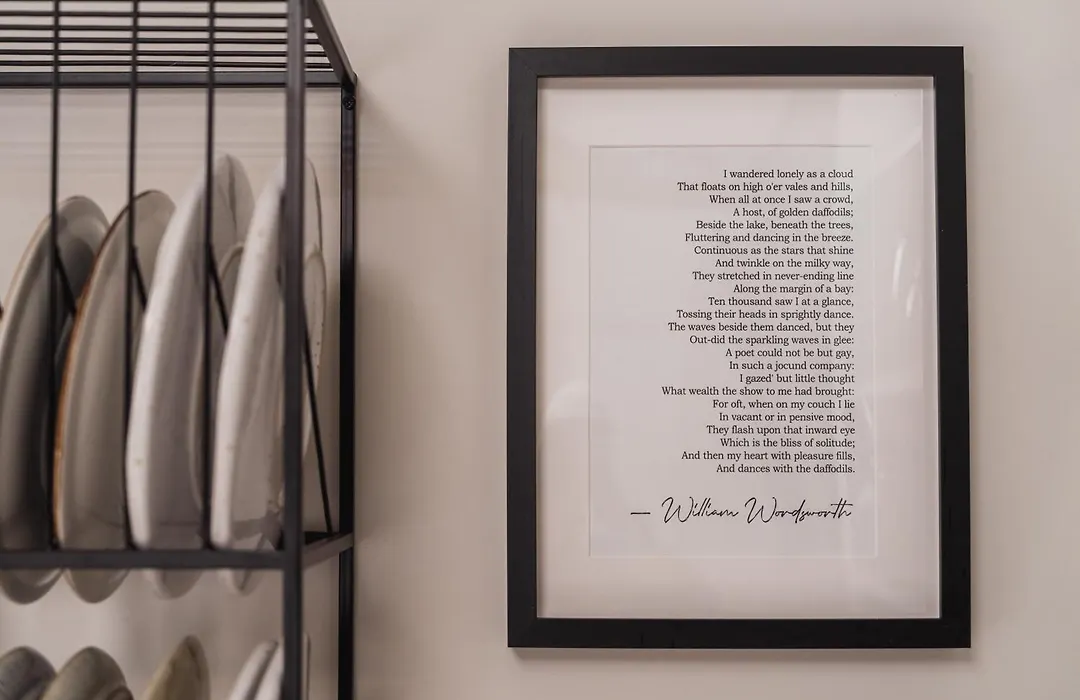 I wandered lonely as a cloud
That floats on high o'er vales and hills,
When all at once I saw a crowd,
A host, of golden daffodils;
Beside the lake, beneath the trees,
Fluttering and dancing in the breeze.
Continuous as the stars that shine
And twinkle on the milky way,
They stretched in never-ending line
Along the margin of a bay:
Ten thousand saw I at a glance,
Tossing their heads in sprightly dance.
The waves beside them danced, but they
Out-did the sparkling waves in glee:
A poet could not be but gay,
In such a jocund company:
I gazed' but little thought
What wealth the show to me had brought:
For oft, when on my couch I lie
In vacant or in pensive mood,
They flash upon that inward eye
Which is the bliss of solitude;
And then my heart with pleasure fills,
And dances with the daffodils.
— William Wordsworth